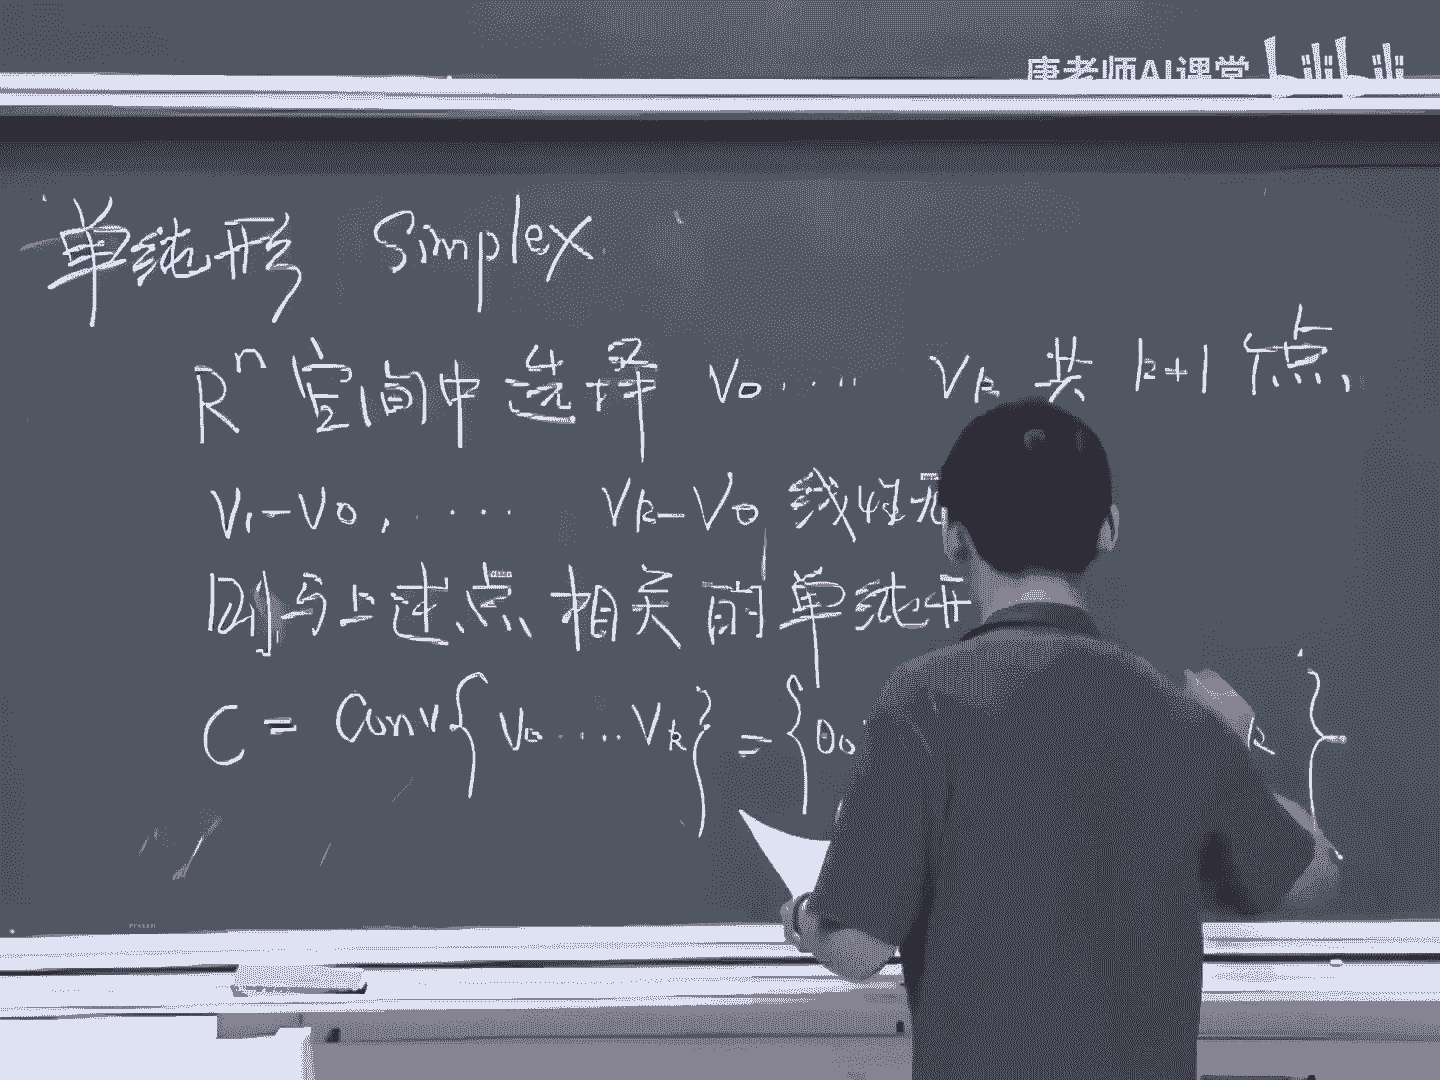 唐老师AI课堂 bilibili
单纯形 Simplex
Rⁿ 空间中选择 v₀ ···· vₖ 共 k+1 个点、
v₁-v₀, ···· vₖ-v₀ 线性无
则与上述点相关的单纯形
C = Conv{v₀ ···· vₖ} = {θ₀ }